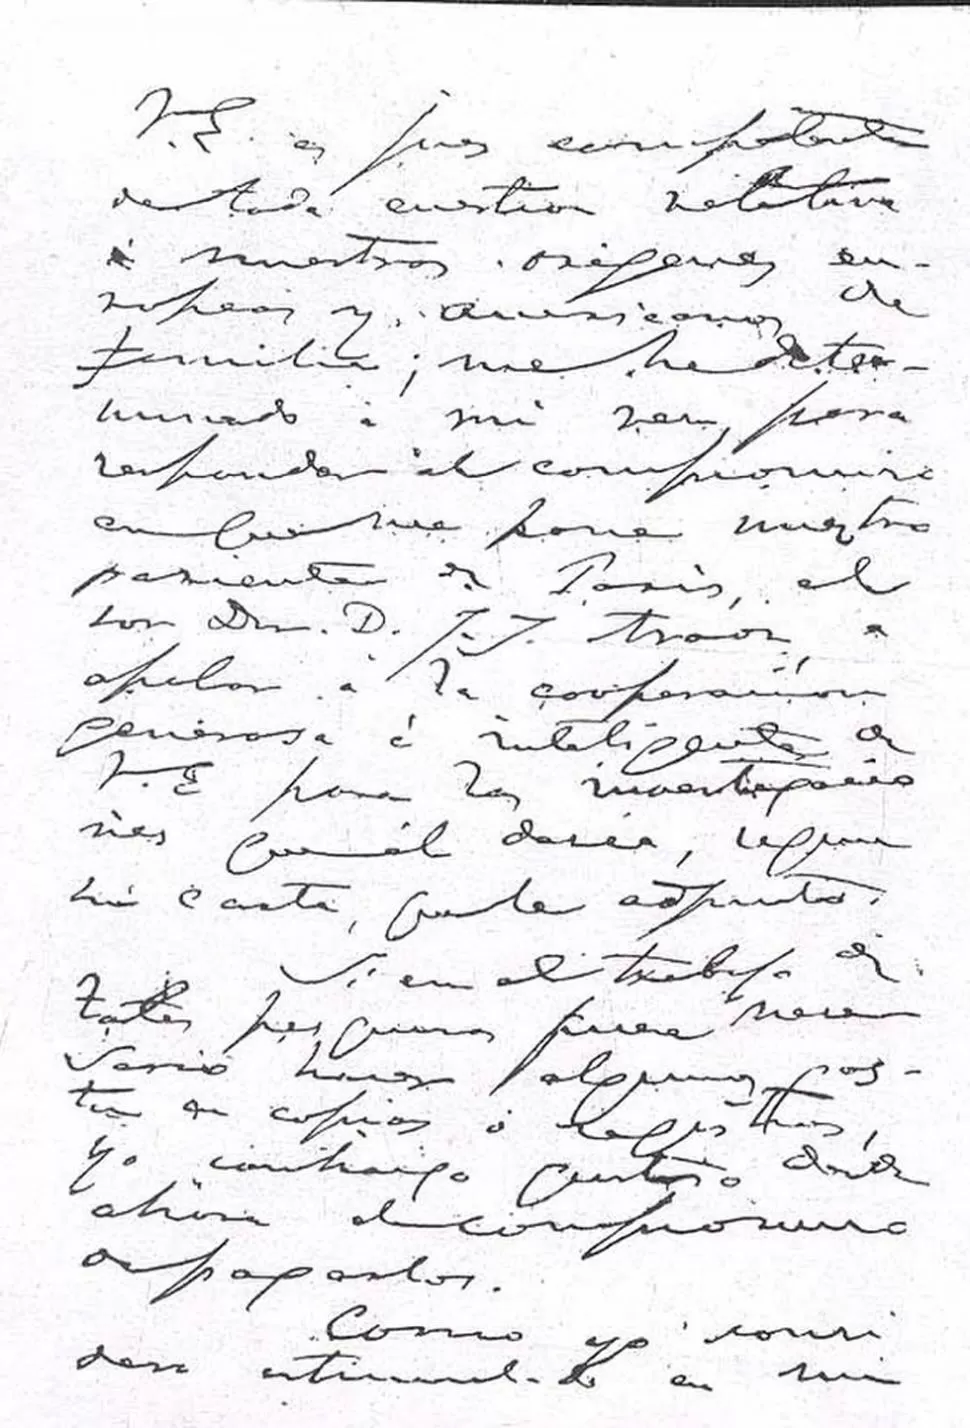 V.E. es juez competente
de toda cuestion relativa
á nuestros origenes eu-
ropeos y americanos de
familia; me he deter-
minado á mi vez, para
responder al compromiso
en que me pone nuestro
pariente de Paris, el
Sor Dr. D. J. J. a
apelar á la cooperación
generosa é inteligente de
V.E. para las investigacio
nes que él desea, segun
su carta, que le adjunto.
Si en el trabajo de
tales pesquisas fuera nece
sario hacer algunos gas-
tos en copias ó registros,
yo contraigo gustoso desde
ahora el compromiso
de pagarlos.
Como yo consi
dero estimulado en mi